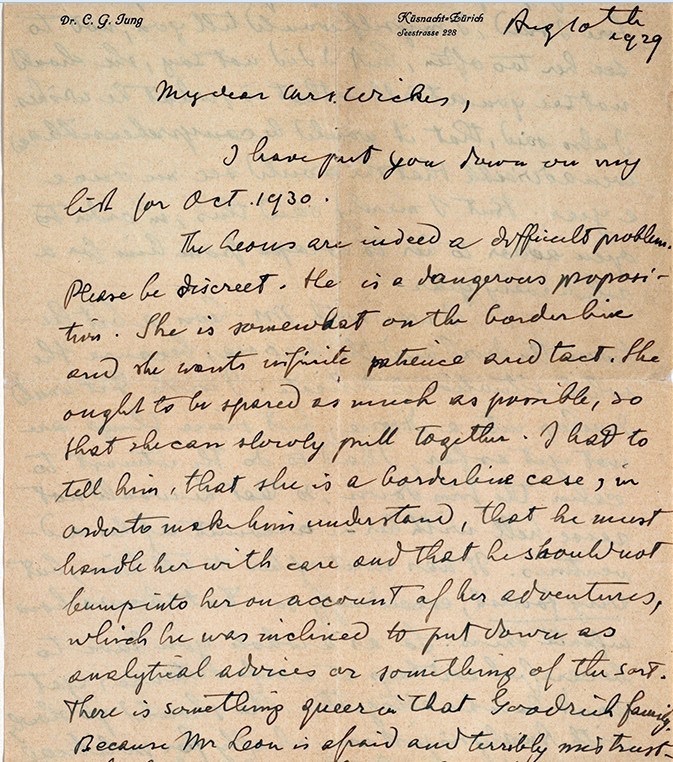 Dr. C. G. Jung
Küsnacht-Zürich
Seestrasse 228
Aug 10th
1929
My dear Mrs. Wickes,
I have put you down on my
list for Oct. 1930.
The Leons are indeed a difficult problem.
Please be discreet. He is a dangerous proposi-
tion. She is somewhat on the borderline
and she wants infinite patience and tact. She
ought to be spared as much as possible, so
that she can slowly pull together. I had to
tell him, that she is a borderline case, in
order to make him understand, that he must
handle her with care and that he should not
bump into her on account of her adventures,
which he was inclined to put down as
analytical advices or something of the sort.
There is something queer in that Goodrich family.
Because Mr Leon is afraid and terribly mistrust-